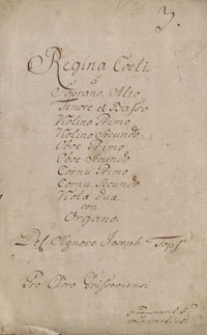 3.
Regina Coeli.
à
Soprano, Alto
Tenore et Basso
Violino Primo
Violino Secundo
Oboe Primo
Oboe Secundo
Cornu Primo
Cornu Secundo
Viola Dua
con
Organo.
Del Signore Joseph
Pro Choro